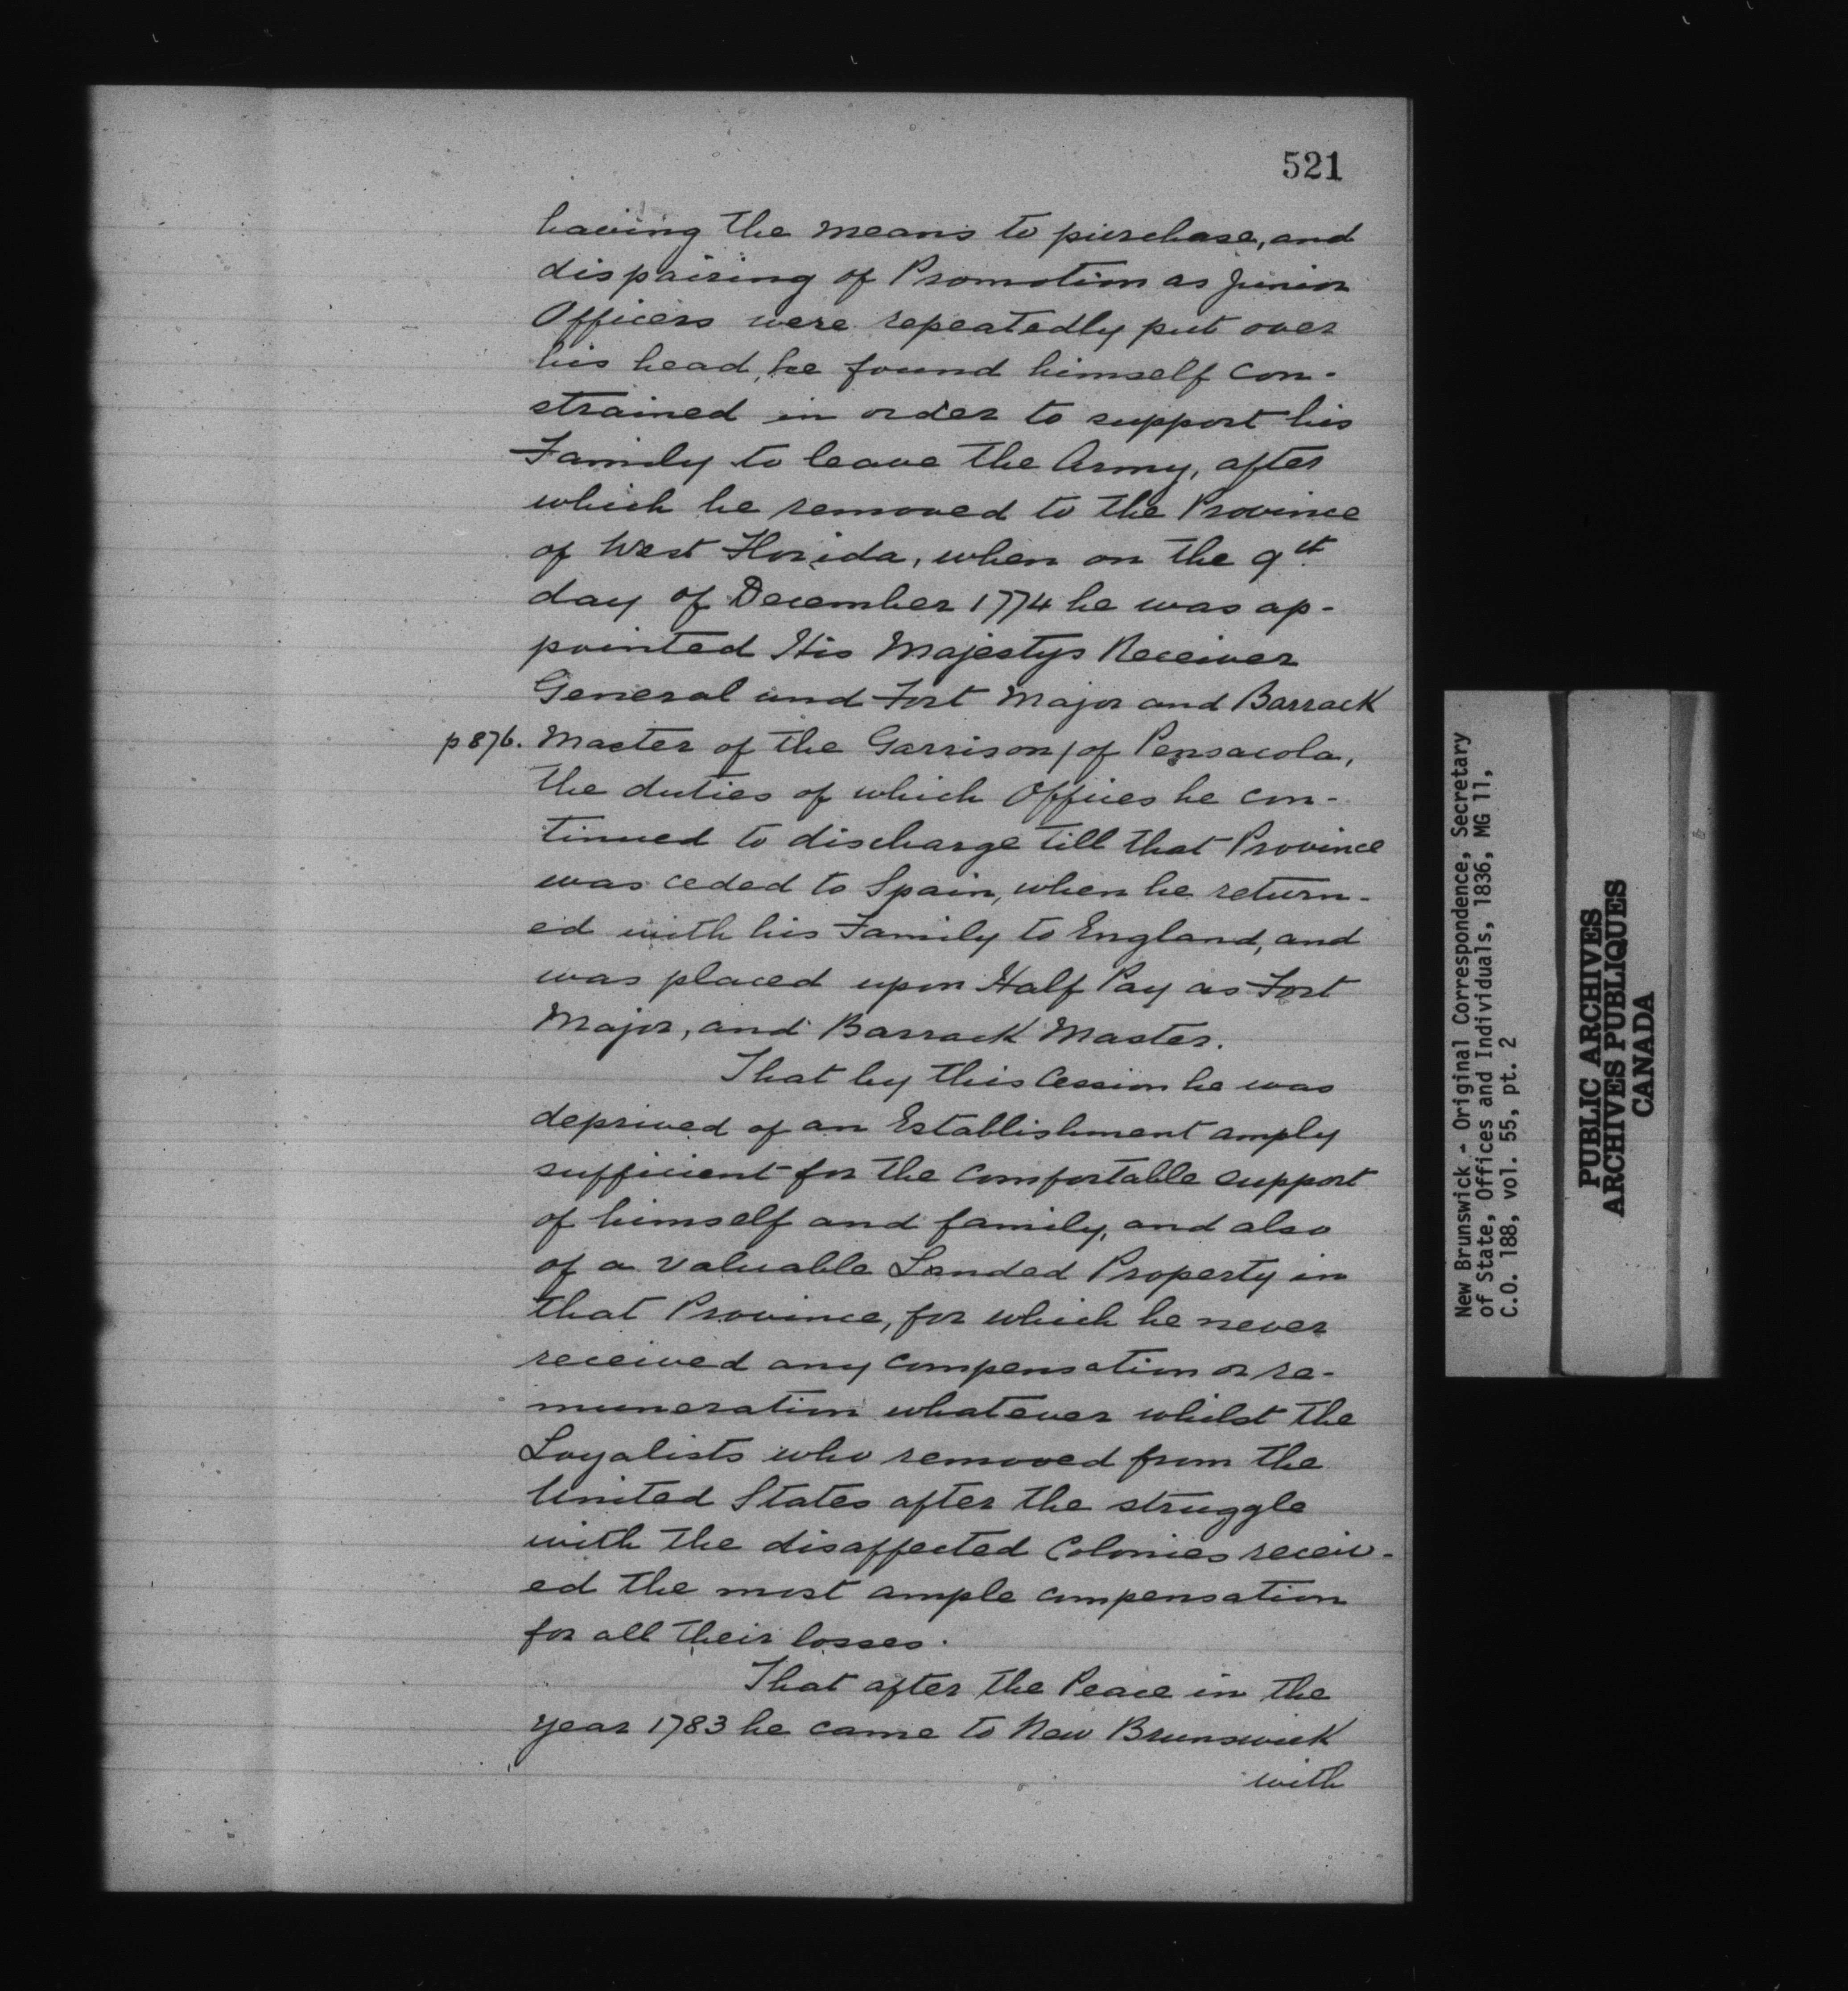 521
having the means to purchase, and
dispairing of Promotion as junior
Officers were repeatedly put over
his head, he found himself con-
strained in order to support his
Family to leave the Army, after
which he removed to the Province
of West Florida, when on the 9th
day of December 1774 he was ap-
pointed His Majestys Receiver
General and Fort Major and Barrack
p 876. Master of the Garrison / of Pensacola,
the duties of which Offices he con-
tinued to discharge till that Province
was ceded to Spain, when he return-
ed with his Family to England, and
was placed upon Half Pay as Fort
Major, and Barrack Master.
That by this Cession he was
deprived of an Establishment amply
sufficient for the comfortable support
of himself and family, and also
of a valuable Landed Property in
that Province, for which he never
received any compensation or re-
muneration whatever whilst the
Loyalists who removed from the
United States after the struggle
with the disaffected Colonies receiv-
ed the most ample compensation
for all their losses.
That after the Peace in the
year 1783 he came to New Brunswick
with
New Brunswick - Original Correspondence, Secretary
of State, Offices and Individuals, 1836, MG 11,
C.O. 188, vol. 55, pt. 2
PUBLIC ARCHIVES
ARCHIVES PUBLIQUES
CANADA